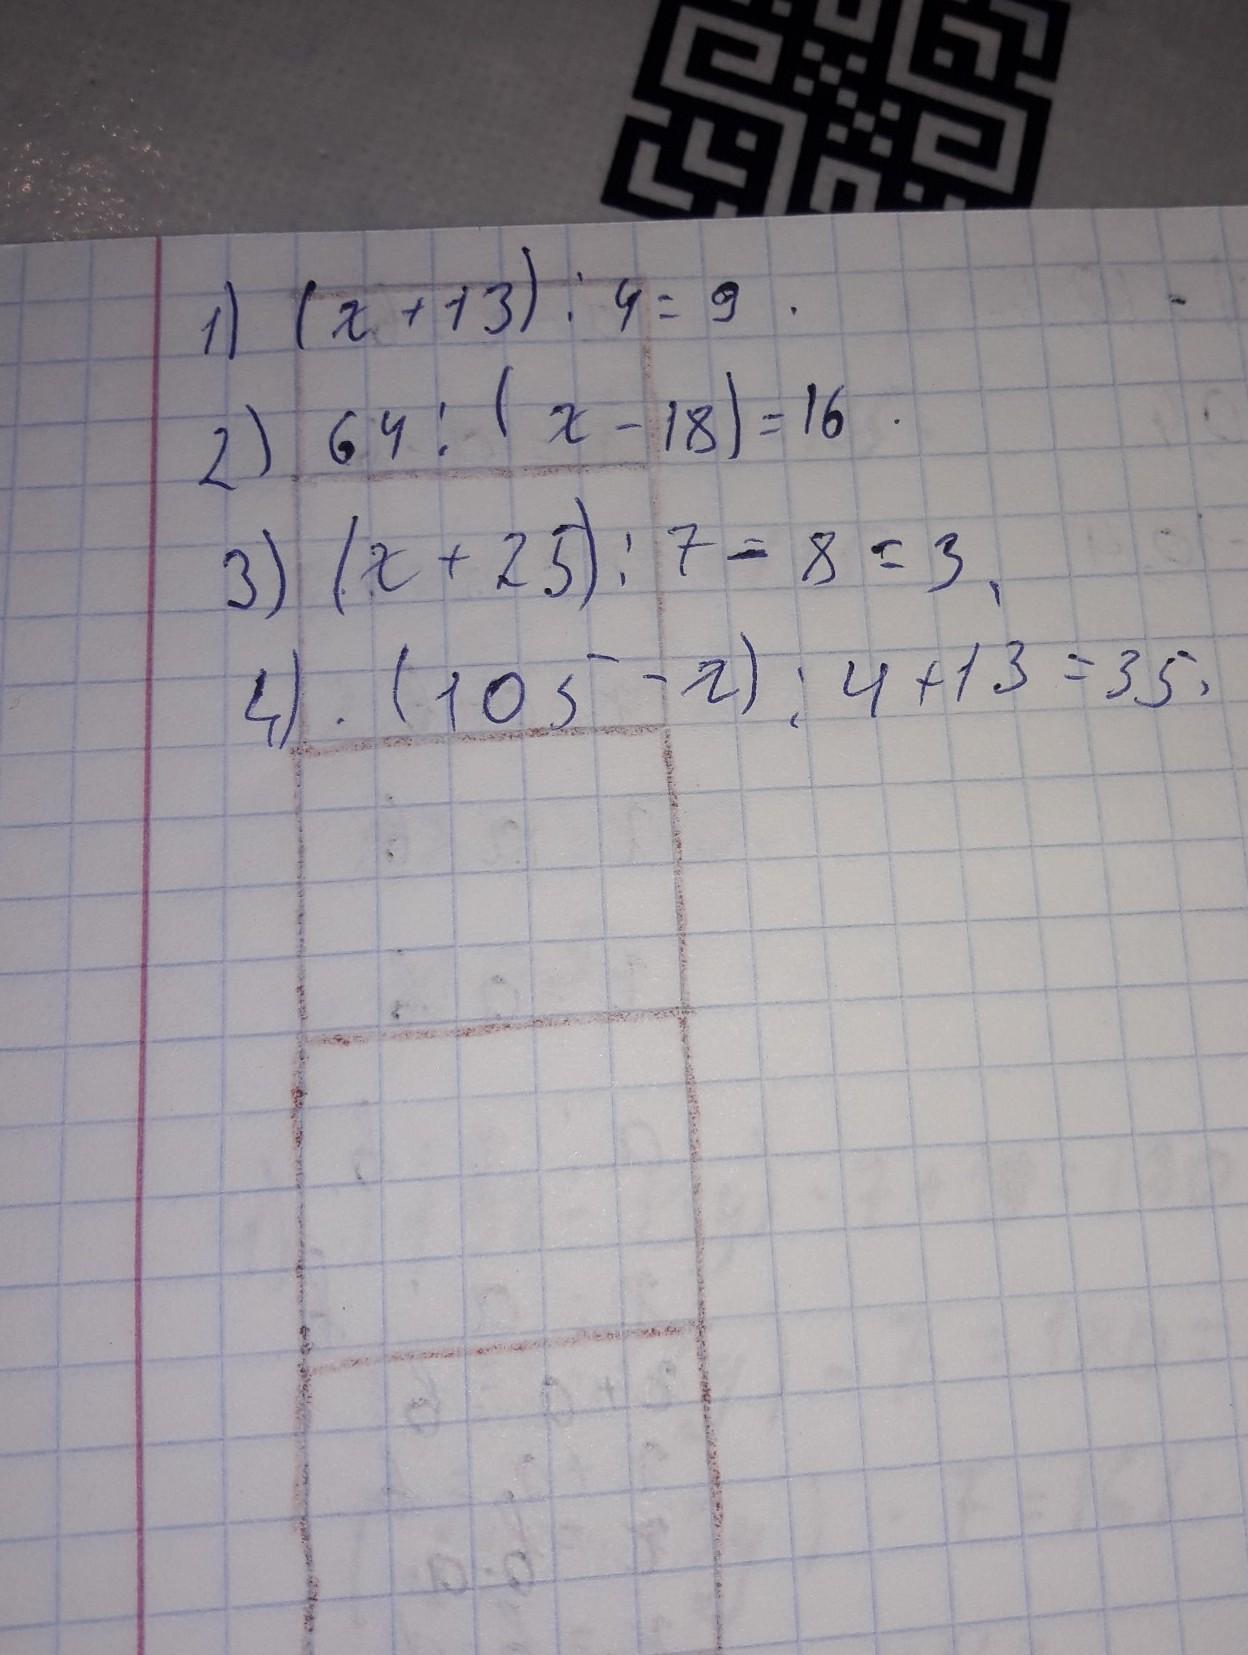 1) (x + 13) : 4 = 9 .
2) 64 : ( x - 18) = 16 .
3) (x + 25) : 7 - 8 = 3,
4) . (105 - x) : 4 + 13 = 35,